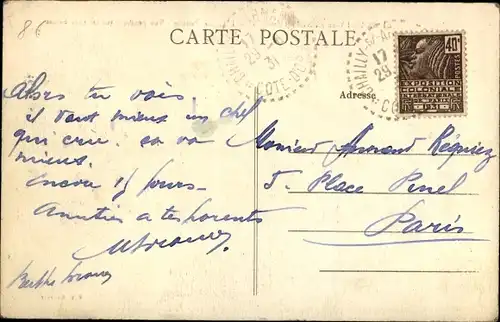 86
CARTE POSTALE
Alors tu vois
il vaut mieux un chef
qui crie. ça va
mieux.
encore 15 jours -
Amitiés à tes parents
Berthe
Adresse
Monsieur Armand
5. Place Pinel
Paris
17
29
31
CÔTE-D'OR
17
29
40c
POSTES
EXPOSITION
COLONIALE
INTERNATIONALE
PARIS 1931